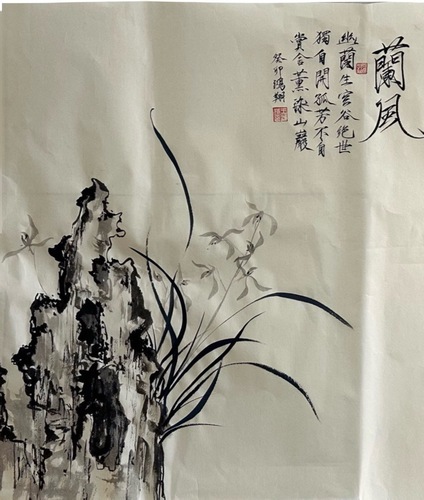 蘭風
幽蘭生空谷絕世
獨自開孤芳不自
賞含薰染山巖
癸卯鴻翔